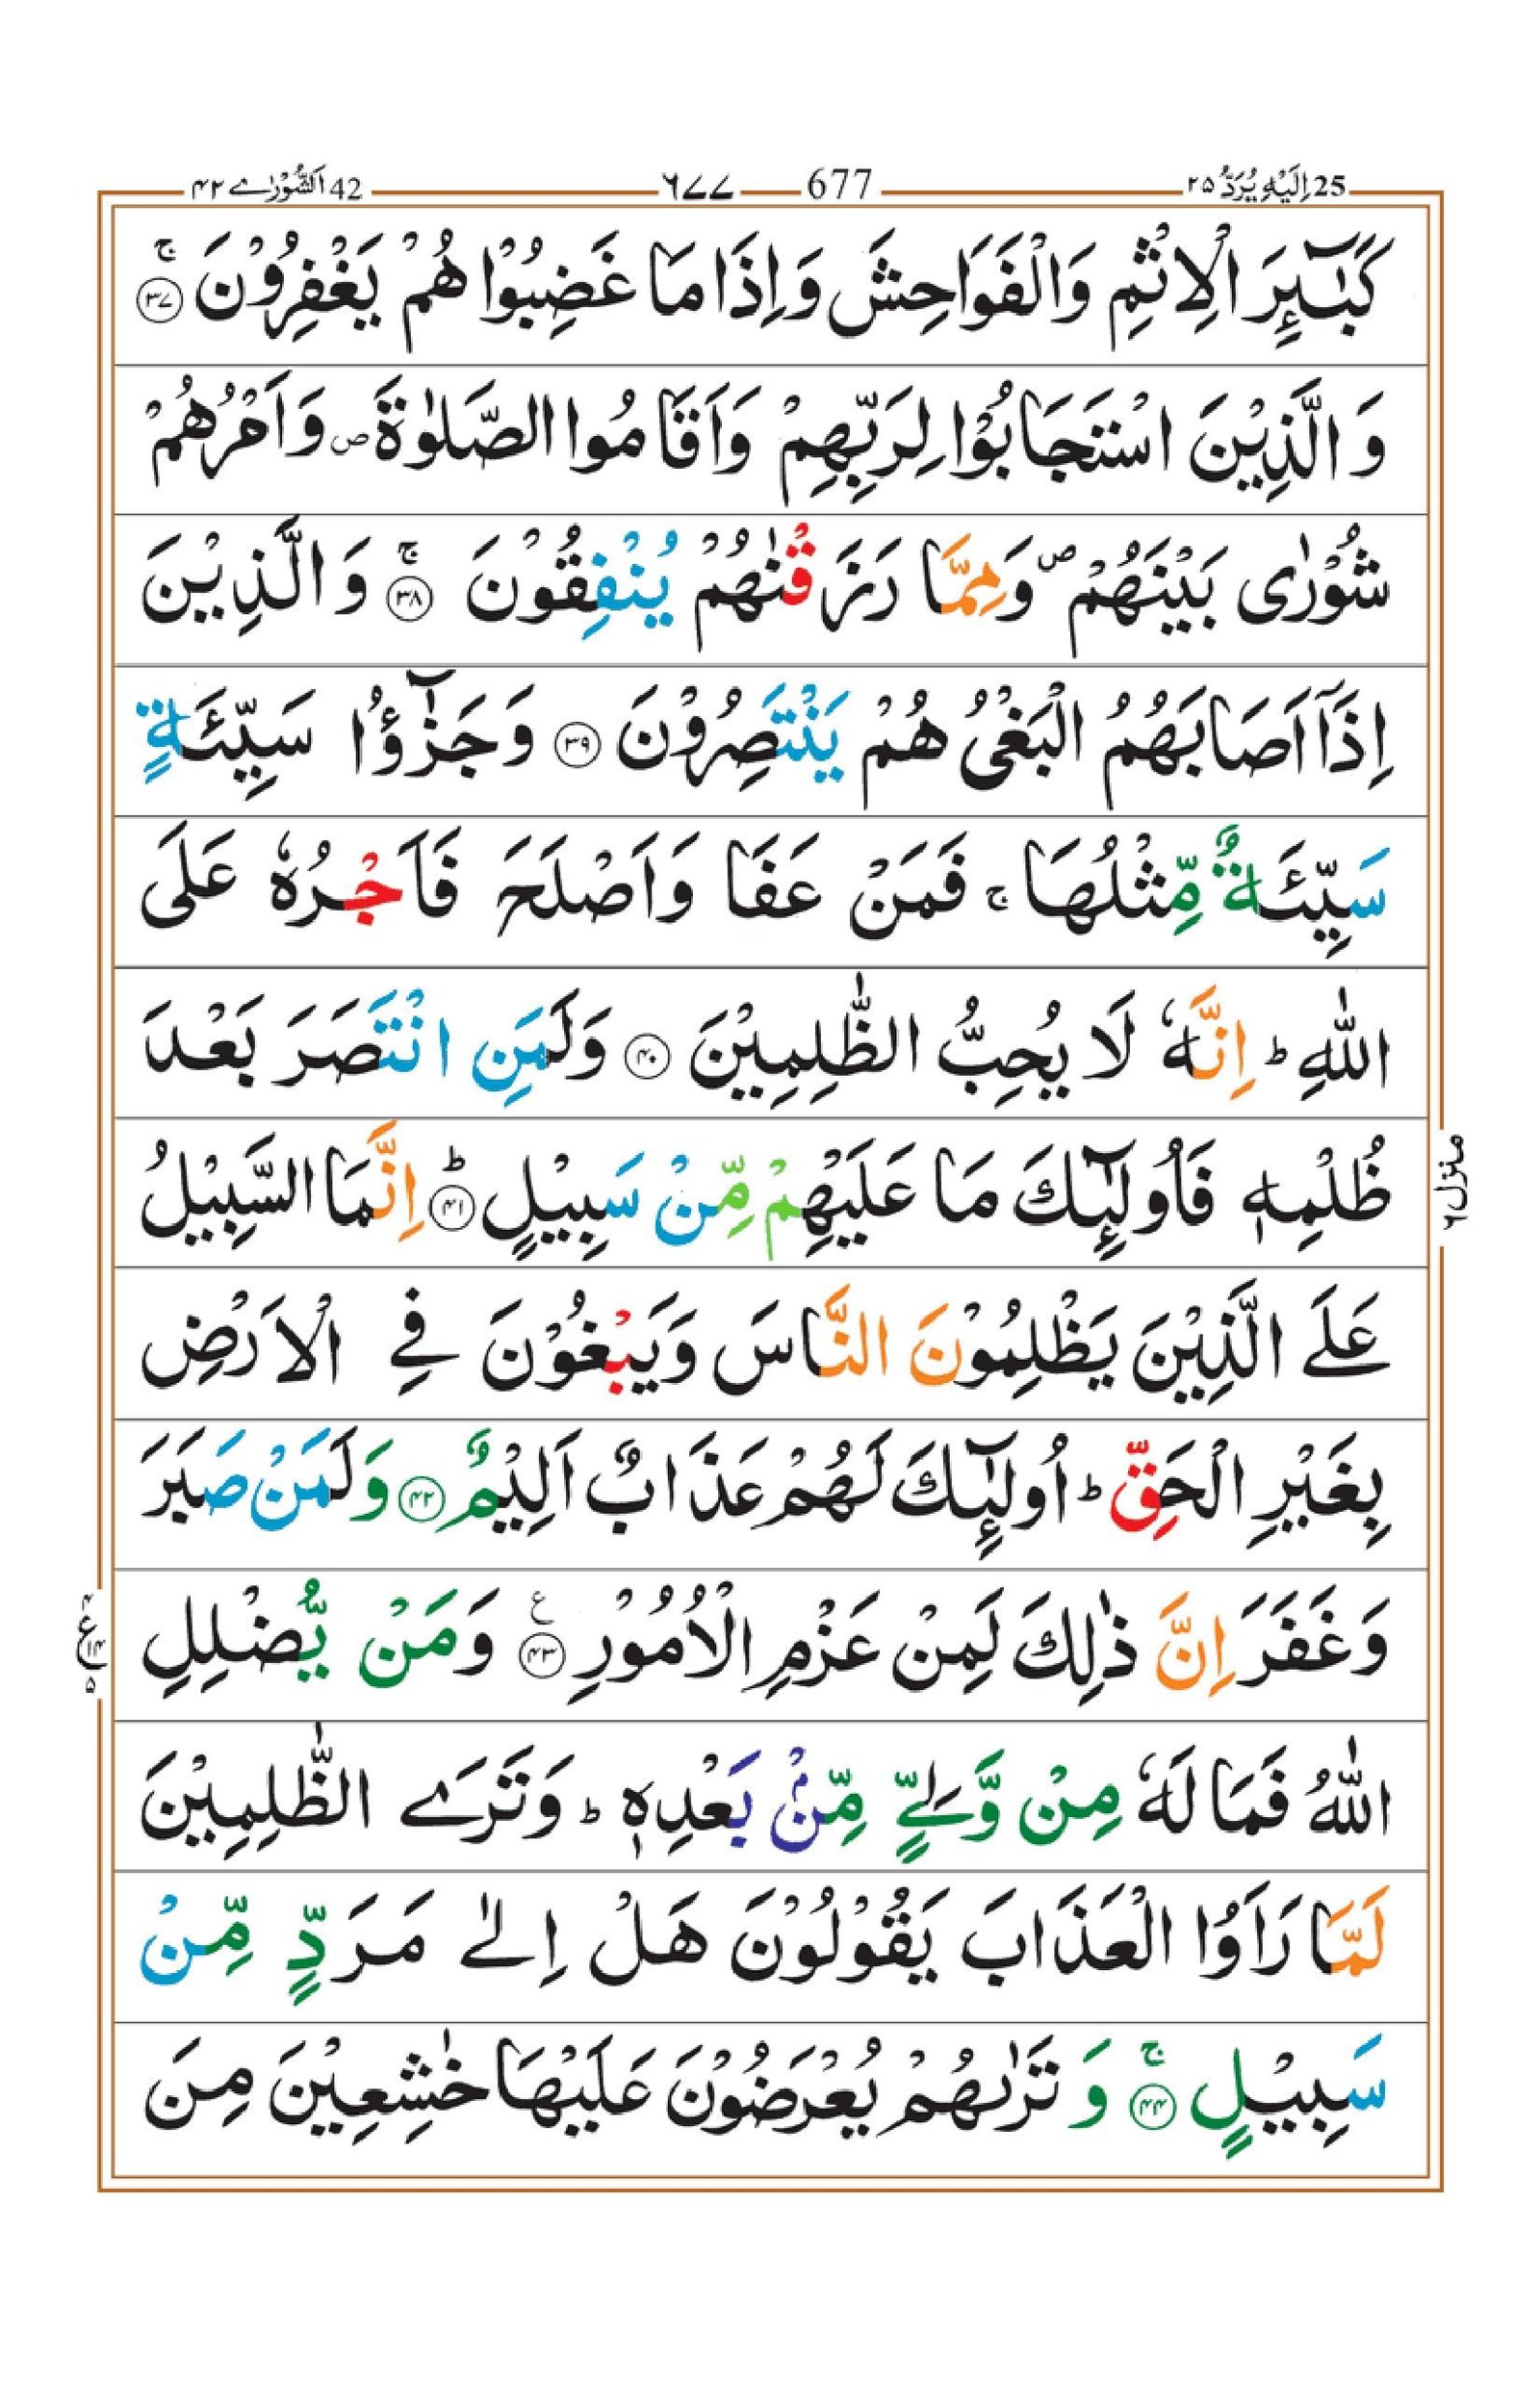 25 اِلَيْهِ يُرَدُّ ۲۵ 677 ٦٧٧ 42 اَلشُّوْرٰے ۴۲
كَبٰٓىِٕرَ الْاِثْمِ وَالْفَوَاحِشَ وَاِذَا مَا غَضِبُوْا هُمْ يَغْفِرُوْنَ ۚ ﴿۳۷﴾
وَالَّذِيْنَ اسْتَجَابُوْا لِرَبِّهِمْ وَاَقَامُوا الصَّلٰوةَ ۪ وَاَمْرُهُمْ
شُوْرٰى بَيْنَهُمْ ۪ وَمِمَّا رَزَقْنٰهُمْ يُنْفِقُوْنَ ۚ ﴿۳۸﴾ وَالَّذِيْنَ
اِذَآ اَصَابَهُمُ الْبَغْيُ هُمْ يَنْتَصِرُوْنَ ﴿۳۹﴾ وَجَزٰٓؤُا سَيِّئَةٍ
سَيِّئَةٌ مِّثْلُهَا ۚ فَمَنْ عَفَا وَاَصْلَحَ فَاَجْرُهٗ عَلَى
اللّٰهِ ؕ اِنَّهٗ لَا يُحِبُّ الظّٰلِمِيْنَ ﴿۴۰﴾ وَلَمَنِ انْتَصَرَ بَعْدَ
ظُلْمِهٖ فَاُولٰٓىِٕكَ مَا عَلَيْهِمْ مِّنْ سَبِيْلٍ ؕ ﴿۴۱﴾ اِنَّمَا السَّبِيْلُ
عَلَے الَّذِيْنَ يَظْلِمُوْنَ النَّاسَ وَيَبْغُوْنَ فِے الْاَرْضِ
بِغَيْرِ الْحَقِّ ؕ اُولٰٓىِٕكَ لَهُمْ عَذَابٌ اَلِيْمٌ ﴿۴۲﴾ وَلَمَنْ صَبَرَ
وَغَفَرَ اِنَّ ذٰلِكَ لَمِنْ عَزْمِ الْاُمُوْرِ ﴿۴۳﴾ ع وَمَنْ يُّضْلِلِ
اللّٰهُ فَمَا لَهٗ مِنْ وَّلِےٍّ مِّنْۢ بَعْدِهٖ ؕ وَتَرَے الظّٰلِمِيْنَ
لَمَّا رَاَوُا الْعَذَابَ يَقُوْلُوْنَ هَلْ اِلٰے مَرَدٍّ مِّنْ
سَبِيْلٍ ۚ ﴿۴۴﴾ وَتَرٰىهُمْ يُعْرَضُوْنَ عَلَيْهَا خٰشِعِيْنَ مِنَ
منزل ٦